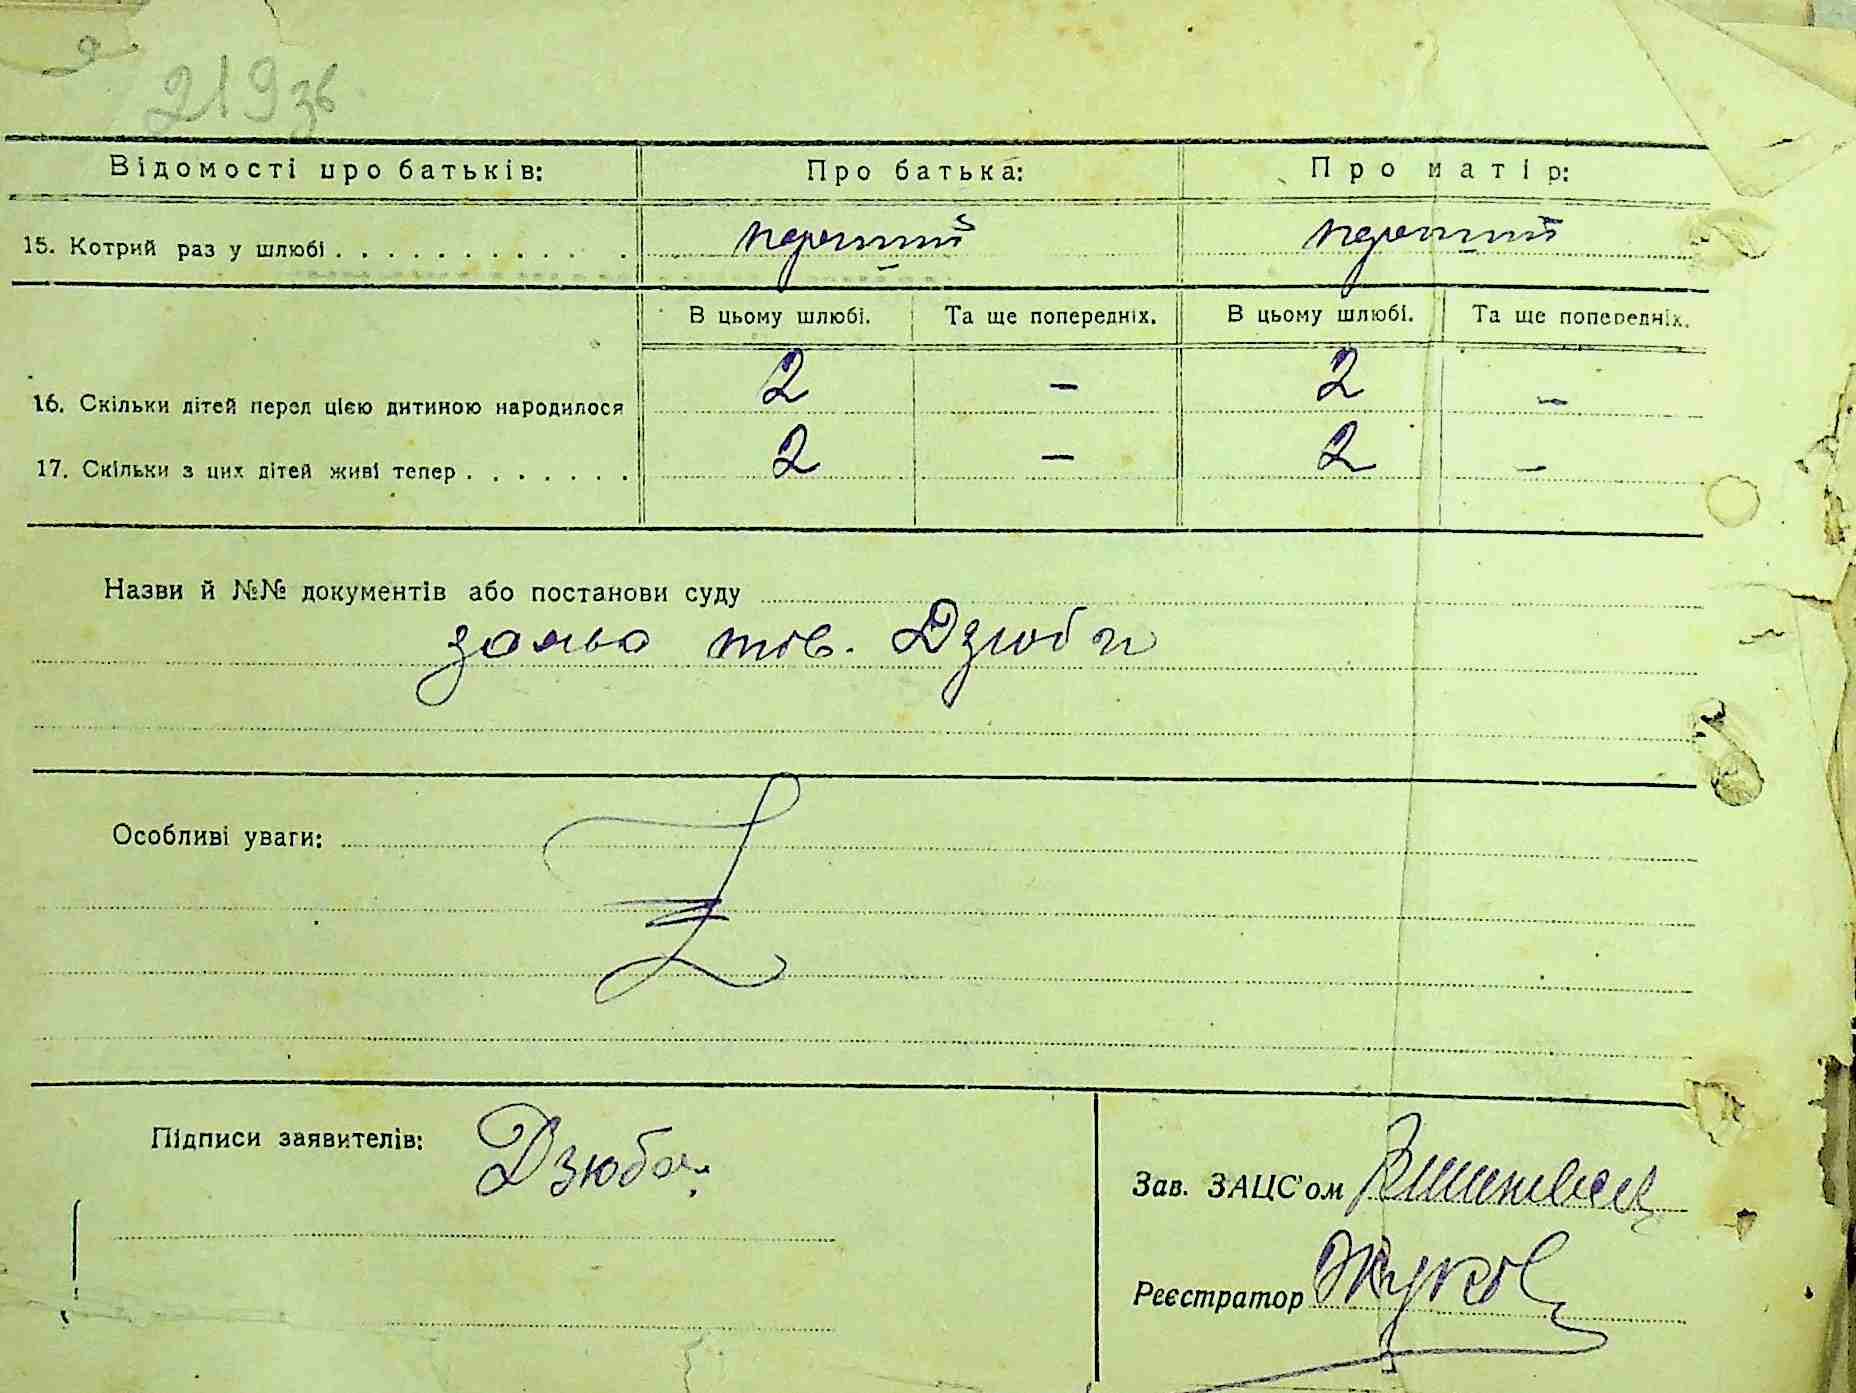 219 зв.
Відомості про батьків: Про батька: Про матір:
15. Котрий раз у шлюбі . . . . . . . . . . . . перший перший
В цьому шлюбі. Та ще попередніх. В цьому шлюбі. Та ще попередніх.
16. Скільки дітей перед цією дитиною народилося 2 – 2 –
17. Скільки з цих дітей живі тепер . . . . . . . 2 – 2 –
Назви й №№ документів або постанови суду
заява тов. Дзюби
Особливі уваги:
Підписи заявителів: Дзюба
Зав. ЗАЦС'ом
Реєстратор Жуков